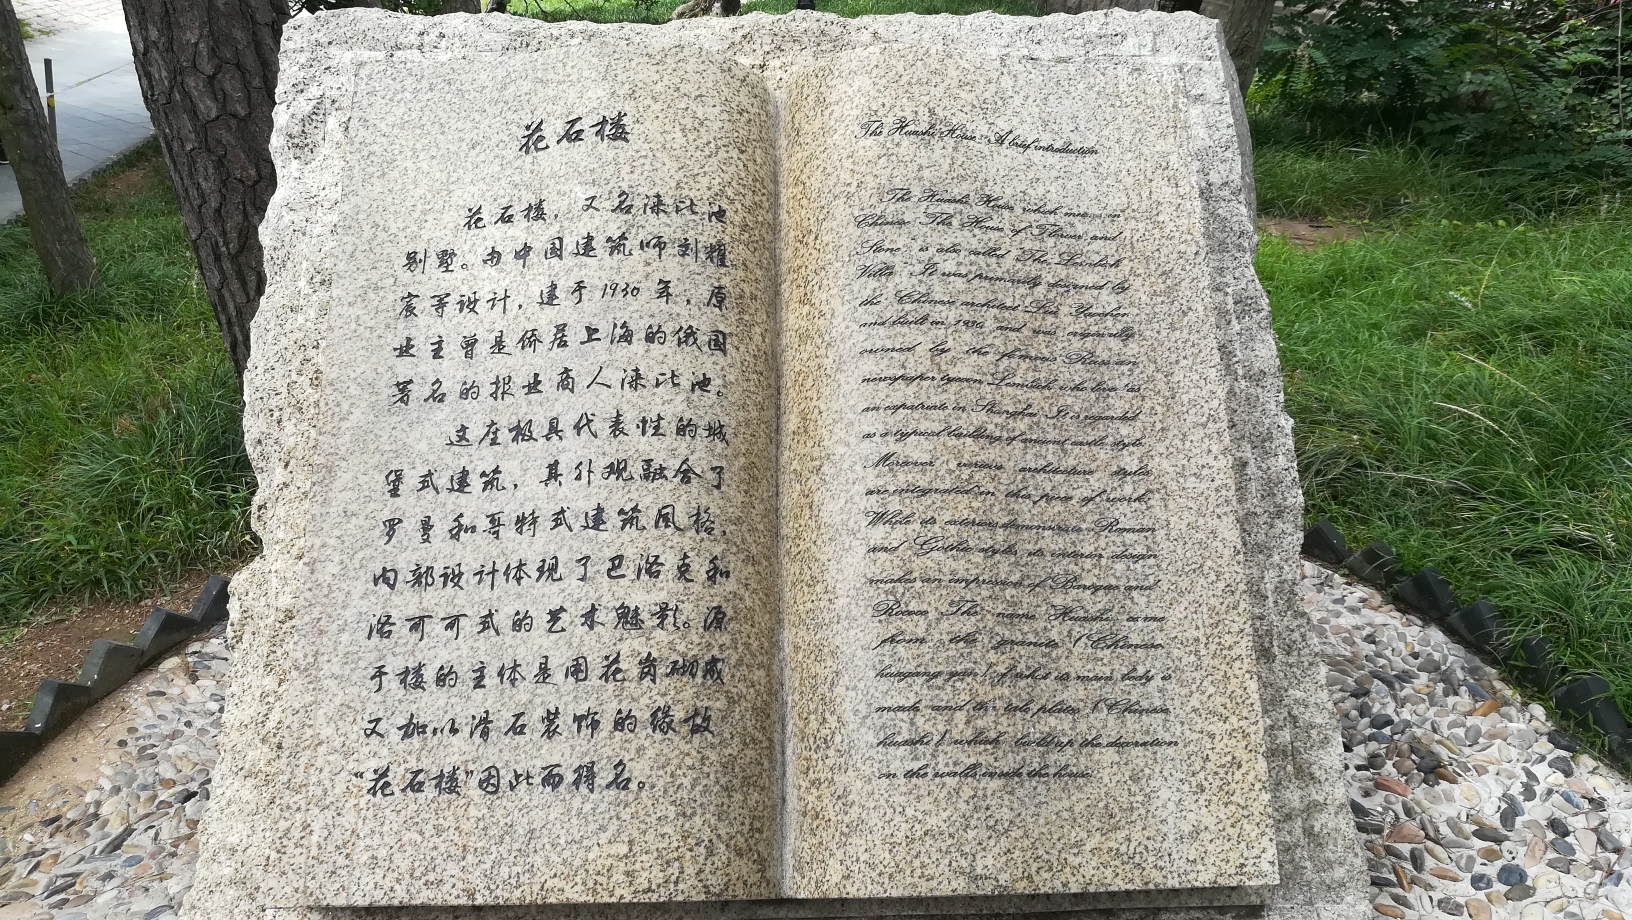 花石楼
花石楼，又名涞比池
别墅。由中国建筑师刘耀
宸等设计，建于1930年，原
业主曾是侨居上海的俄国
署名的报业商人涞比池。
这座极具代表性的城
堡式建筑，其外观融合了
罗曼和哥特式建筑风格，
内部设计体现了巴洛克和
洛可可式的艺术魅影。源
于楼的主体是用花岗砌成
又加以滑石装饰的缘故
“花石楼”因此而得名。
The Huashi House - A brief introduction
The Huashi House which means in
Chinese "The House of Flower and
Stone" is also called "The Lembich
Villa". It was primarily designed by
the Chinese architect Liu Yaochen
and built in 1930, and was originally
owned by the famous Russian
newspaper tycoon Lembich who live as
an expatriate in Shanghai. It is regarded
as a typical building of ancient castle style.
Moreover various architecture styles
are integrated in this piece of work.
While its exteriors demonstrate Roman
and Gothic styles, its interior design
makes an impression of Baroque and
Rococo. The name Huashi came
from the granite (Chinese:
huagang yan) of what its main body is
made and the talc plate (Chinese:
huashi) which build up the decoration
on the walls inside the house.